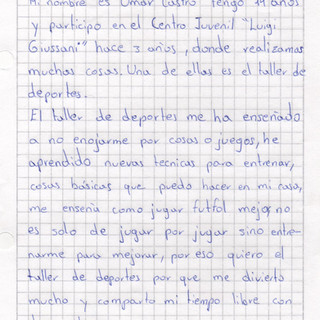 Mi nombre es Omar Castro tengo 14 años
y participo en el Centro Juvenil "Luigi
Giussani" hace 3 años, donde realizamos
muchas cosas. Una de ellas es el taller de
deportes.
El taller de deportes me ha enseñado
a no enojarme por cosas o juegos, he
aprendido nuevas tecnicas para entrenar,
cosas básicas que puedo hacer en mi casa,
me enseña como jugar futfol mejor no
es solo de jugar por jugar sino entre-
narme para mejorar, por eso quiero el
taller de deportes por que me divierto
mucho y comparto mi tiempo libre con